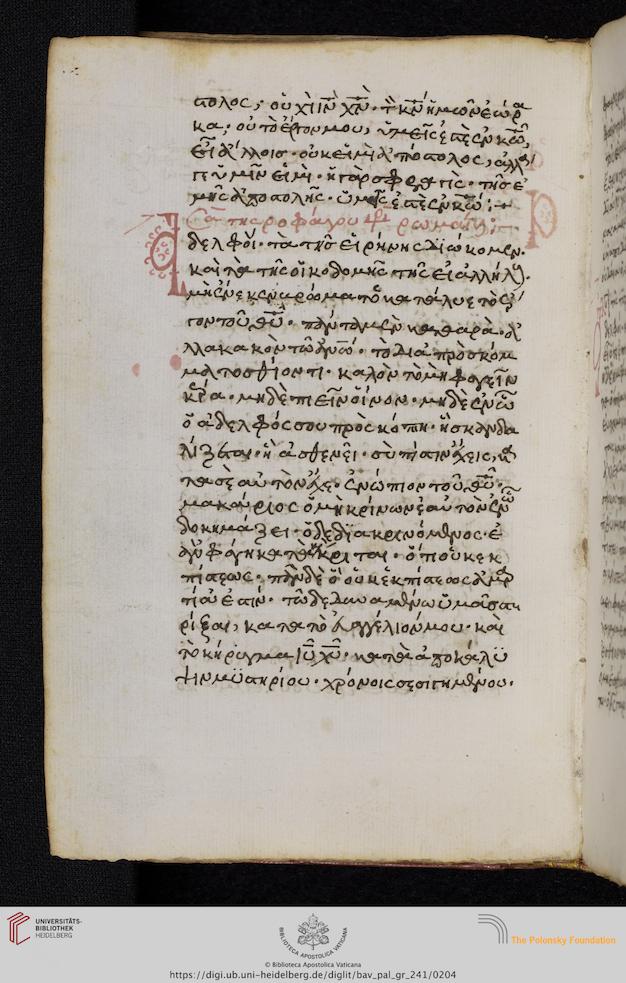 πολος; οὐχὶ ἰν̅ χν̅ τὸν κν̅ ἡμῶν ἑώρα
κα; οὐ τὸ ἔργον μου, ὑμεῖς ἐστὲ ἐν κω̅,
εἰ ἄλλοισ οὐκ εἰμὶ ἀπόστολος, ἀλλά
γε ὑμῖν εἰμὶ. ἡ γὰρ σφραγὶς τῆσ ἐ
μῆς ἀποστολῆς ὑμεῖς ἐστὲ ἐν κω̅:
ρωμαίους:
δελφοὶ. τὰ τῆσ εἰρήνης διώκομεν.
καὶ τὰ τῆς οἰκοδομῆς τῆς εἰς ἀλλήλους.
μὴ ἕνεκεν βρώματος κατάλυε τὸ ἔρ
γον τοῦ θυ̅. πάντα μὲν καθαρὰ. ἀ
λλα κακὸν τῶ ἀνω̅. τῶ διὰ προσκόμ
ματοσ ἐσθίοντι. καλὸν τὸ μὴ φαγεῖν
κρέα. μηδὲ πιεῖν οἶνον. μηδὲ ἐν ᾧ
ὁ ἀδελφός σου προσκόπτει. ἢ σκανδα
λίζεται. ἢ ἀσθενεῖ. σὺ πίστιν ἔχεις, κα
τὰ σεαυτὸν ἔχε. ἐνώπιον τοῦ θυ̅.
μακάριος ὁ μὴ κρίνων ἑαυτὸν ἐν ᾧ
δοκιμάζει. ὁ δὲ διακρινόμενος. ἐ
ὰν φάγη κατακέκριται. ὅτι οὐκ ἐκ
πίστεως. πᾶν δὲ ὃ οὐκ ἐκ πίστεως ἁμαρ
τία ἐστίν. τῶ δὲ δυναμένω ὑμᾶσ στη
ρίξαι, κατὰ τὸ εὐαγγέλιόν μου. καὶ
τὸ κήρυγμα ιυ̅ χυ̅. κατὰ ἀποκάλυ
ψιν μυστηρίου. χρόνοις σεσιγημένου.
UNIVERSITÄTS-
BIBLIOTHEK
HEIDELBERG
BIBLIOTECA APOSTOLICA VATICANA
The Polonsky Foundation
© Biblioteca Apostolica Vaticana
https://digi.ub.uni-heidelberg.de/diglit/bav_pal_gr_241/0204